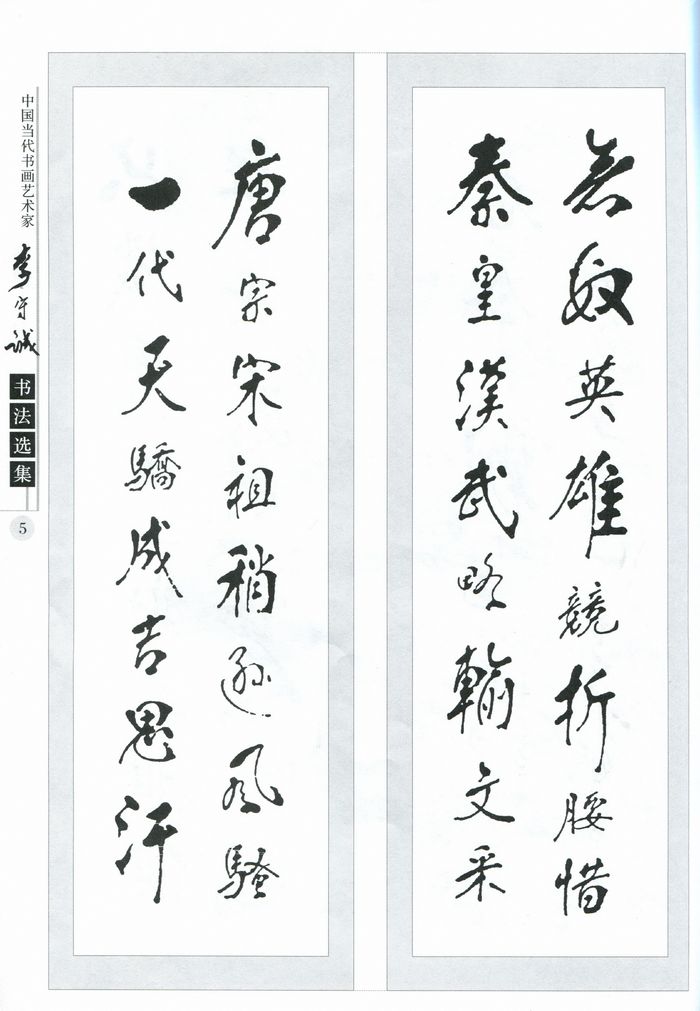 无数英雄競折腰惜
秦皇漢武略輸文采
唐宗宋祖稍遜風騷
一代天驕成吉思汗
中国当代书画艺术家
李守誠
书法选集
5